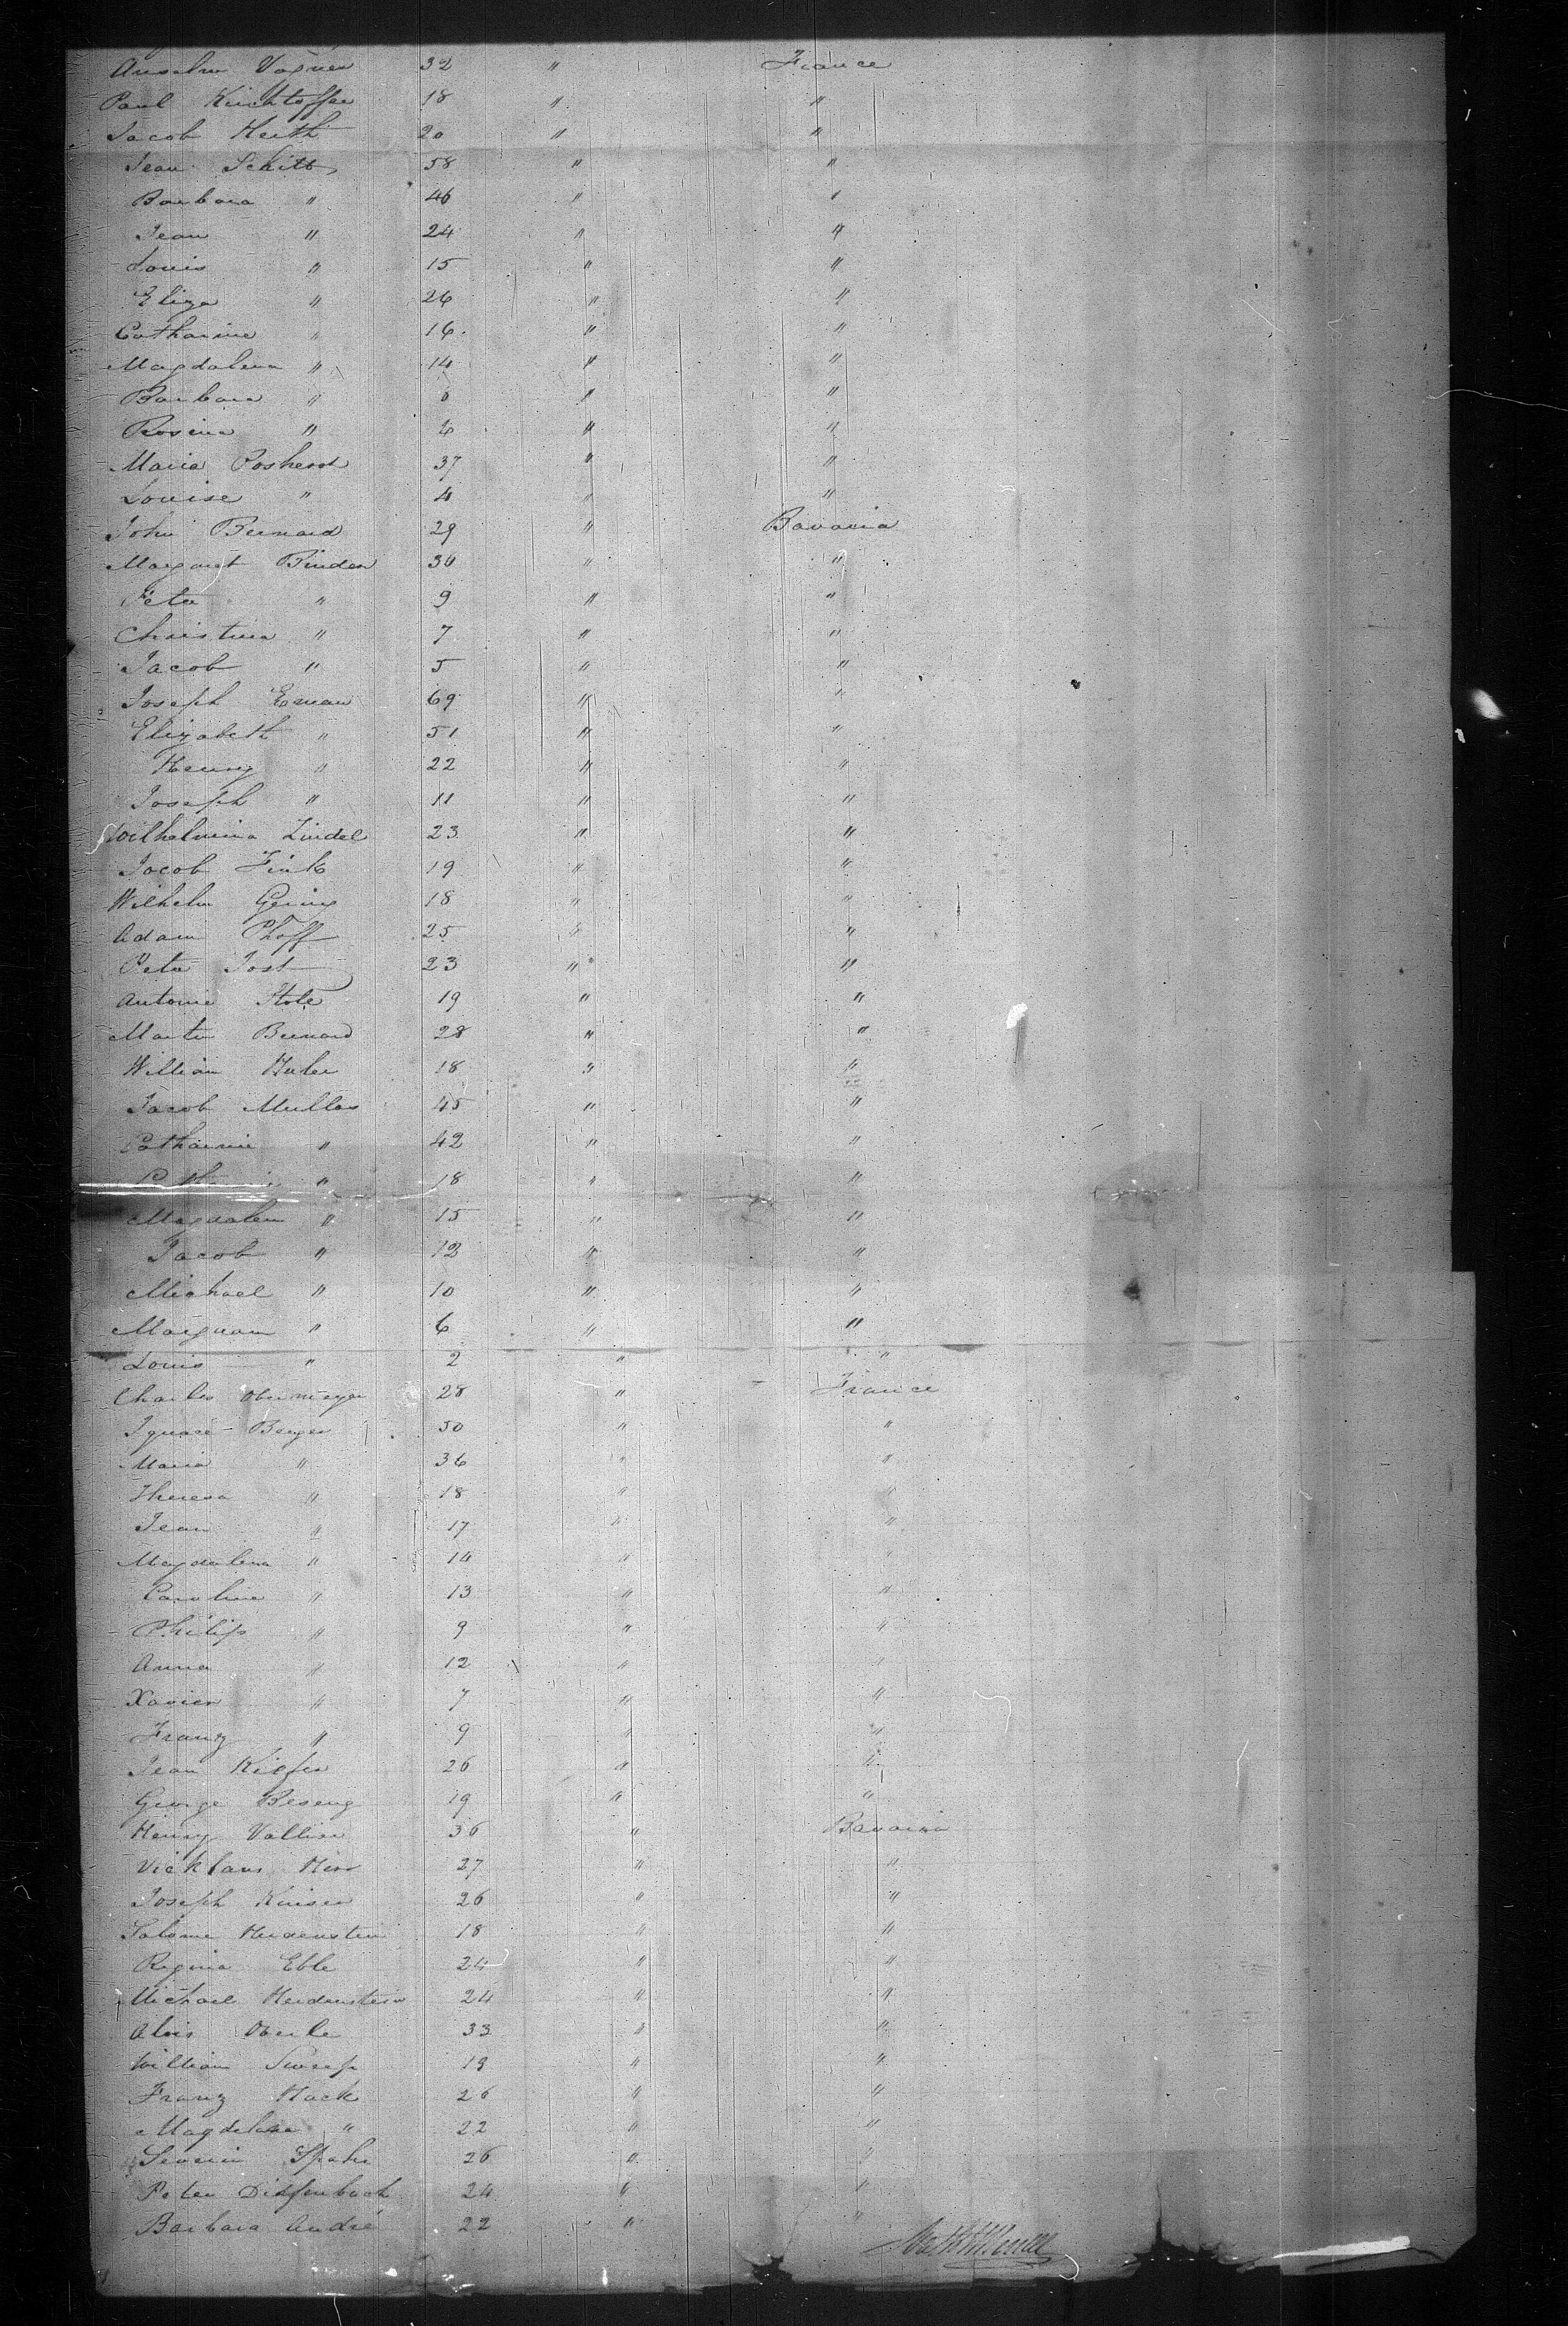 Anselm Vagner 32 " France
Paul Kirchtoffer 18 " "
Jacob Herth 20 " "
Jean Schitt 58 " "
Barbara " 46 " "
Jean " 24 " "
Louis " 15 " "
Eliza " 26 " "
Catharine " 16 " "
Magdalena " 14 " "
Barbara " 6 " "
Rosina " 4 " "
Maria 37 " "
Louise " 4 " "
John Bernard 29 " Bavaria
Margaret Binder 30 " "
Peter " 9 " "
Christina " 7 " "
Jacob " 5 " "
Joseph Eman 69 " "
Elizabeth " 51 " "
Henry " 22 " "
Joseph " 11 " "
Wilhelmina Lindel 23 " "
Jacob Fink 19 " "
Wilhelm 18 " "
Adam Phoff 25 " "
Peter Jost 23 " "
Antonie 19 " "
Martin Bernard 28 " "
William Huber 18 " "
Jacob Muller 45 " "
Catharine " 42 " "
" 18 " "
Magdalen " 15 " "
Jacob " 12 " "
Michael " 10 " "
" 6 " "
Louis " 2 " "
Charles Obermeyer 28 " France
Ignace Berger 50 " "
Maria " 36 " "
Theresa " 18 " "
Jean " 17 " "
Magdalena " 14 " "
Caroline " 13 " "
Philip " 9 " "
Anna " 12 " "
Xavier " 7 " "
Franz " 9 " "
Jean Kiefer 26 " "
George Beseng 19 " "
Henry Vollmer 36 " Bavaria
27 " "
Joseph Kaiser 26 " "
Salome Heidenstein 18 " "
Regina Eble 24 " "
Michael Heidenstein 24 " "
Alois Oberle 33 " "
William 19 " "
Franz Hack 26 " "
Magdelena " 22 " "
Severin Spahr 26 " "
Peter Diefenbach 24 " "
Barbara André 22 " "